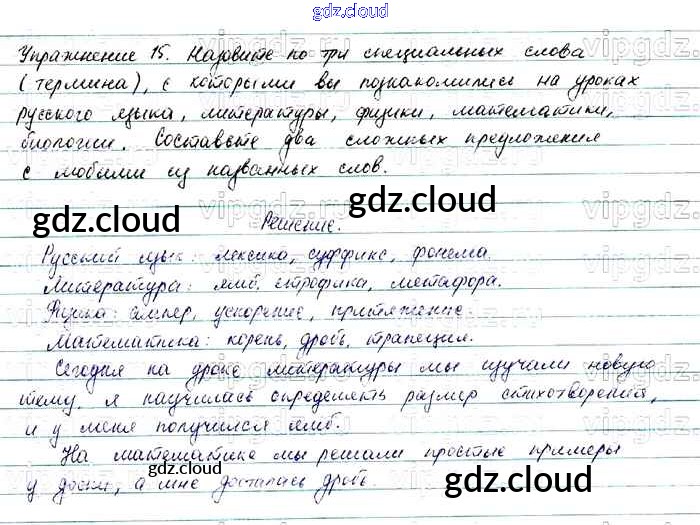 gdz.cloud
Упражнение 15. Назовите по три специальных слова
(термина), с которыми вы познакомились на уроках
русского языка, литературы, физики, математики,
биологии. Составьте два сложных предложения
с любыми из названных слов.
gdz.cloud gdz.cloud
Решение.
Русский язык: лексика, суффикс, фонема.
Литература: ямб, строфика, метафора.
Физика: ампер, ускорение, притяжение.
Математика: корень, дробь, трапеция.
Сегодня на уроке литературы мы изучали новую
тему, я научилась определять размер стихотворения,
и у меня получился ямб.
На математике мы решали простые примеры
у доски, а мне досталась дробь.
gdz.cloud gdz.cloud